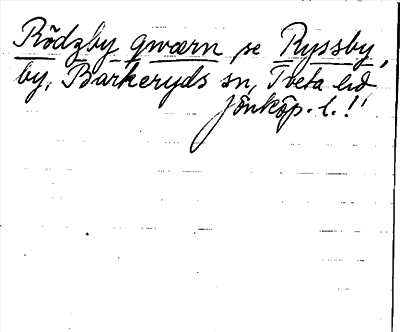 Rödzby qwærn se Ryssby,
by, Barkeryds sn, Tveta hd
Jönköp. l.!